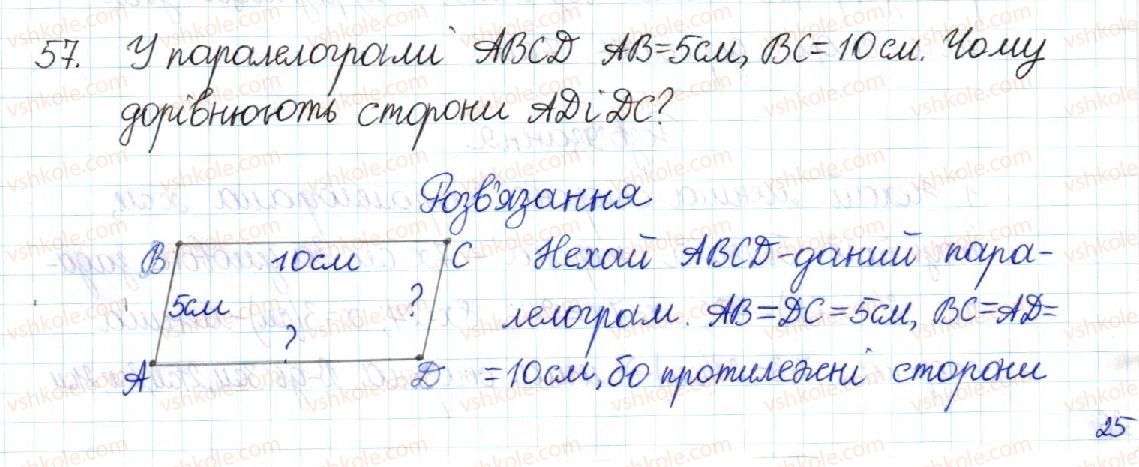 57. У паралелограмі ABCD AB=5см, BC=10см. Чому
дорівнюють сторони AD і DC?
Розв'язання
B 10см C
5см ?
?
A D
Нехай ABCD-даний пара-
лелограм. AB=DC=5см, BC=AD=
=10см, бо протилежні сторони
25
vshkole.com